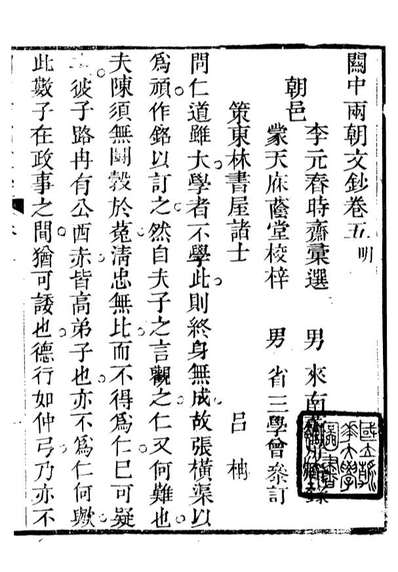 關中兩朝文鈔卷五 明
李元春時齋彙選 男 來南
朝邑
蒙天庥蔭堂校梓 男 省三學曾參訂
策東林書屋諸士 呂柟
問仁道雖大學者不學此則終身無成故張橫渠以
為頑作銘以訂之然自夫子之言觀之仁又何難也
夫陳須無鬭穀於菟清忠無比而不得為仁已可疑
彼子路冉有公西赤皆高弟子也亦不為仁何歟
此數子在政事之間猶可諉也德行如仲弓乃亦不
國立浙
江大學
圖書